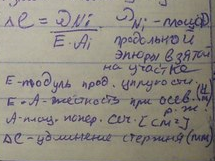 Δℓ = ΩNi / E·Ai ΩNi - площадь
продольной
эпюры взятой
на участке
E - модуль прод. упругости
E·A - жёсткость при осев.
A - площ. попер. сеч. [см²] р-ж
Δℓ - удлинение стержня (мм)